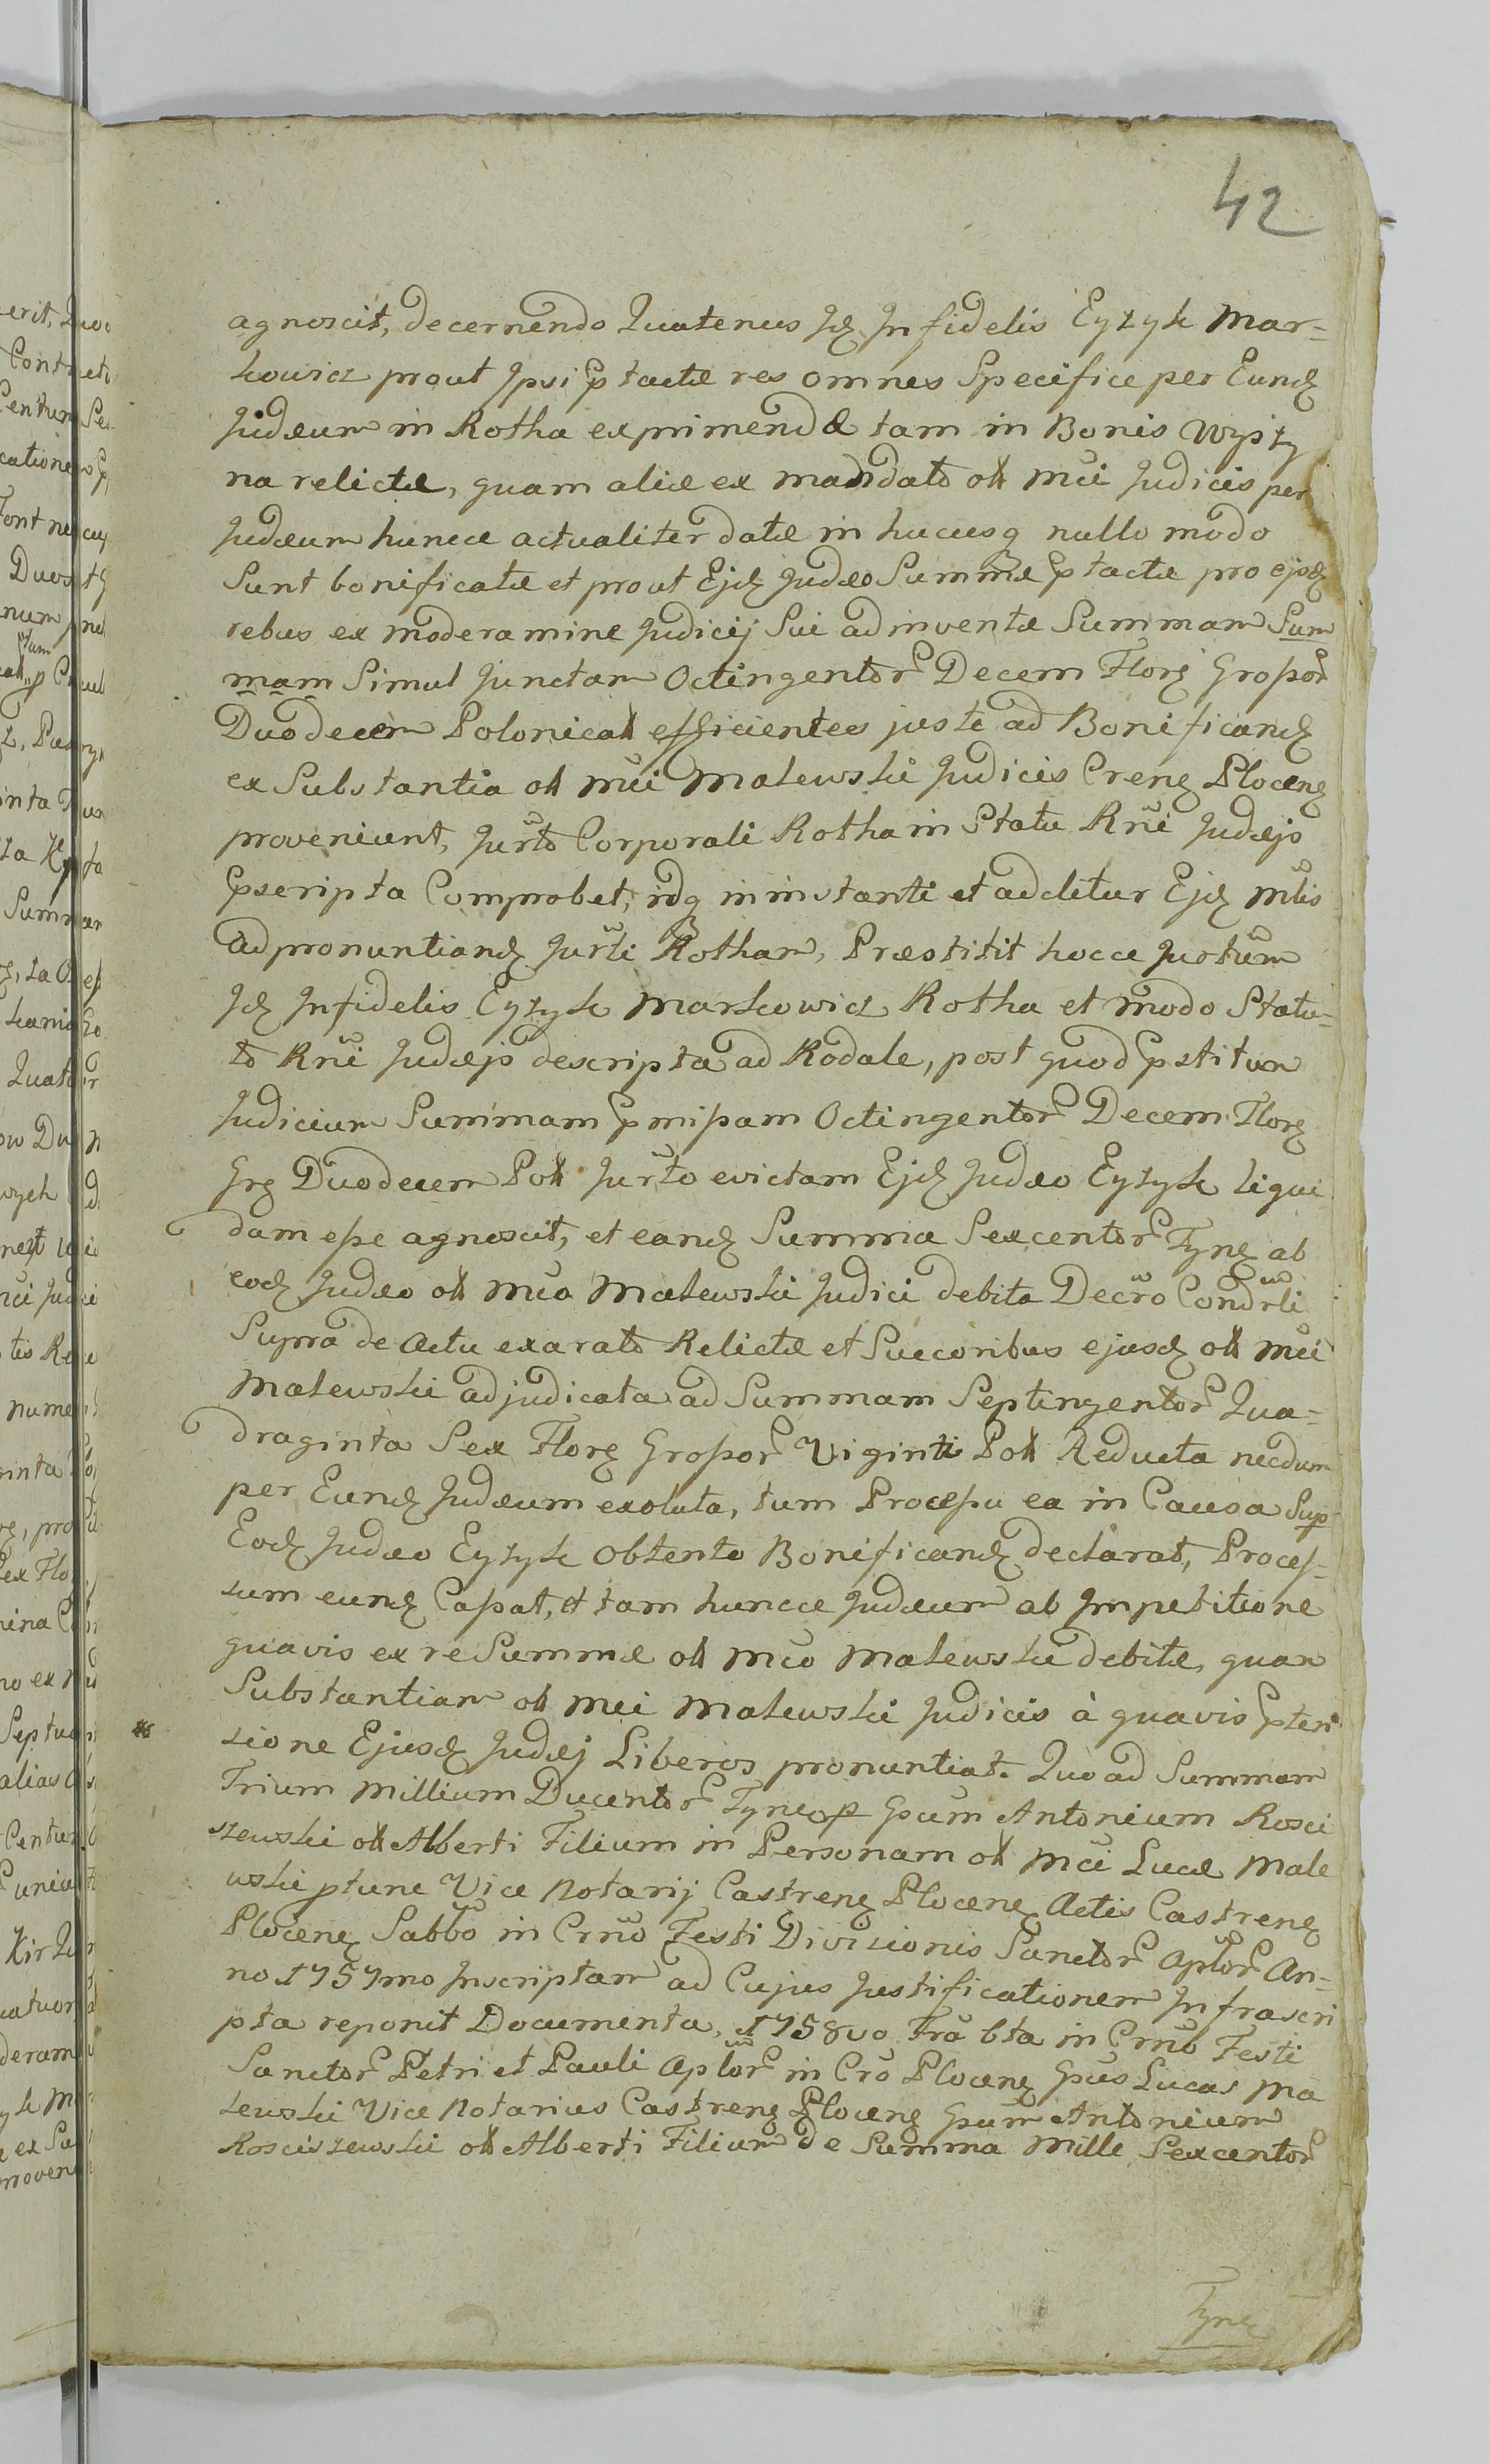 42
agnoscit, decernendo Quatenus Jdꝫ Infidelis Eyzyk Mar=
kowicz prout Ipsi Ptactæ res omnes Specifice per Eundꝫ
Judæum in Rotha exprimendæ tam in Bonis Wyszy
na relictæ, quam aliæ ex mandato oll Mci Judicis per
Judæum huncce actualiter datæ in hucusq nullo modo
Sunt bonificatæ et prout Ejdꝫ Judæo Summæ Ptactæ pro ejsdꝫ
rebus ex moderamine Judicij Sui adinventæ Summam Sum
mam Simul junctam Octingentor Decem Florꝫ Grossor
Duodecem Polonical efficientes juste ad Bonificandꝫ
ex Substantia oll Mci Malewski Judicis Crenꝫ Plocenꝫ
proveniunt, Jurto Corporali Rotha in Statu Rni Judæjo
Pscripta Comprobet, idq in instanti et additur Ejdꝫ Mtis
ad pronuntiandꝫ Jurti Rotham, Præstitit hocce Jurtum
Jdꝫ Infidelis Eyzyk Markowicz Rotha et modo Statu=
to Rni Judæjo descripta ad Rodale, post quod Pstitum
Judicium Summam Pmissam Octingentor Decem Florꝫ
Grꝫ Duodecem Poll Jurto evictam Ejdꝫ Judæo Eyzyk liqui
dam esse agnoscit, et eandꝫ Summa Sexcentor Tynꝫ ab
eodꝫ Judæo oll Mco Malewski Judici debita Decro Condrli
Supra de Actu exarato Relictæ et Succoribus ejusdꝫ oll Mci
Malewski adjudicata ad Summam Septingentor Qua=
draginta Sex Florꝫ Grossor Viginti Poll Reducta necdum
per Eundꝫ Judæum exoluta, tum Processu ea in Causa Sup
Eodꝫ Judæo Eyzyk obtento Bonificandꝫ declarat, Proces=
sum eundꝫ Cassat, et tam huncce Judæum ab Impetitione
quavis ex re Summæ oll Mco Malewski debitæ, quam
Substantiam oll Mci Malewski Judicis à quavis Pten
sione Ejusdꝫ Judæj Liberos pronuntiat. Quo ad Summam
Trium Millium Ducentor Tynfor Gsum Antonium Rosci
szewski oll Alberti Filium in Personam oll Mci Lucæ Male
wski ptunc Vice Notarij Castrenꝫ Plocenꝫ Actis Castrenꝫ
Plocenꝫ Sabbo in Crno Festi Divisionis Sanctor Aplor An=
no 1757mo Inscriptam ad Cujus Justificationem Infrascri
pta reponit Documenta, 1758vo Fra 6ta in Crno Festi
Sanctor Petri et Pauli Aplor in Cro Plocenꝫ Gsus Lucas Ma
lewski Vice Notarius Castrenꝫ Plocenꝫ Gsum Antonium
Rosciszewski oll Alberti Filium de Summa Mille Sexcentor
Tynꝫ